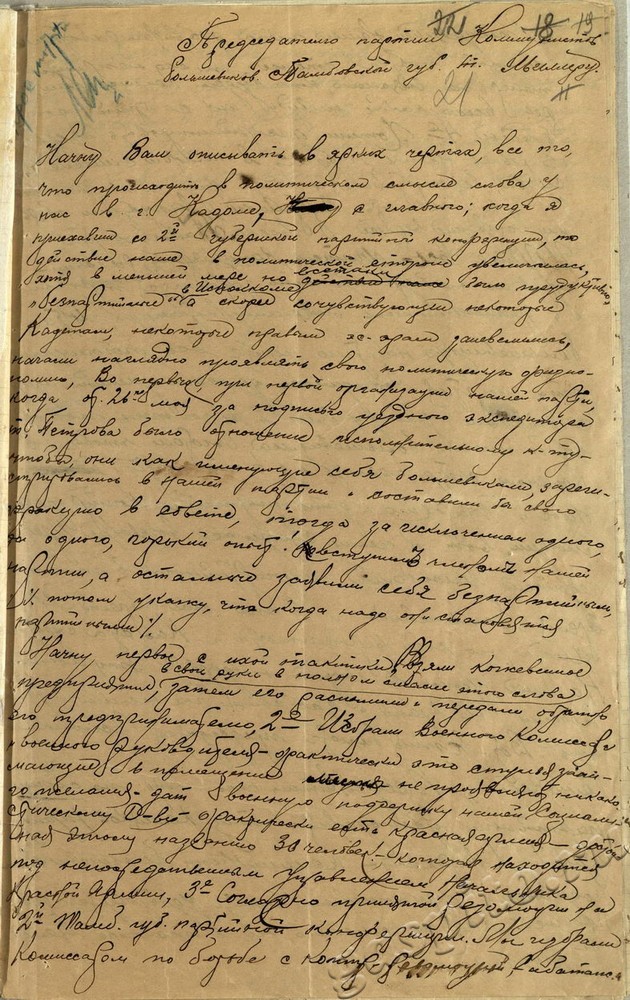 18 19
Председателю партии Коммунистов
большевиков Тамбовской губ. т.
21
Начну Вам описывать в ярких чертах, все то,
что происходит в политическом смысле слова у
нас в г. Кадоме, с главного; когда я
приехавши со 2й губернской партийной конференции, то
действие наше в политической стороне увеличилась,
хотя в меньшей мере но всетаки было продуктивно
в Исполкоме
"безпартийные" а скорей сочувствующии некоторые
Кадетам, некоторые правым эс-эрам зашевелились,
начали наглядно проявлять свою политическую физио-
номию, Во первых, при первой организации нашей партии,
когда от 26го мая за подписью уездного
т. Петрова было отношение исполнительному к-ту-
чтобы они как именующие себя большевиками, зареги-
стрировались в нашей партии и составили бы свою
фракцию в совете, тогда за исключением одного,
да одного, горький опыт! вступил членом нашей
партии, а остальные заявили себя безпартийными,
/% потом укажу, что когда надо они становятся
партийными %/
Начну первое с ихой тактики, Взяли кожевенное
в свои руки в полном смысле этого слова
предприятие, затем его и передали обратно
его предпринимателю, 2е Избрали Военного Комиссара
и военного руководителя – фактически это стулья зани-
мающие в помещении не проявляя никако-
го желания – дать военную поддержку нашей Социали-
стическому О-ву фактически есть Красная армия –
ная этому названию 30 человек! которая находится
под непосредственным управлением Начальника
Красной Армии, 3е Согласно принятой резолюции на
2й Тамб. губ. партийной конференции. Мы избрали
Комиссаром по борьбе с контр-революцией,